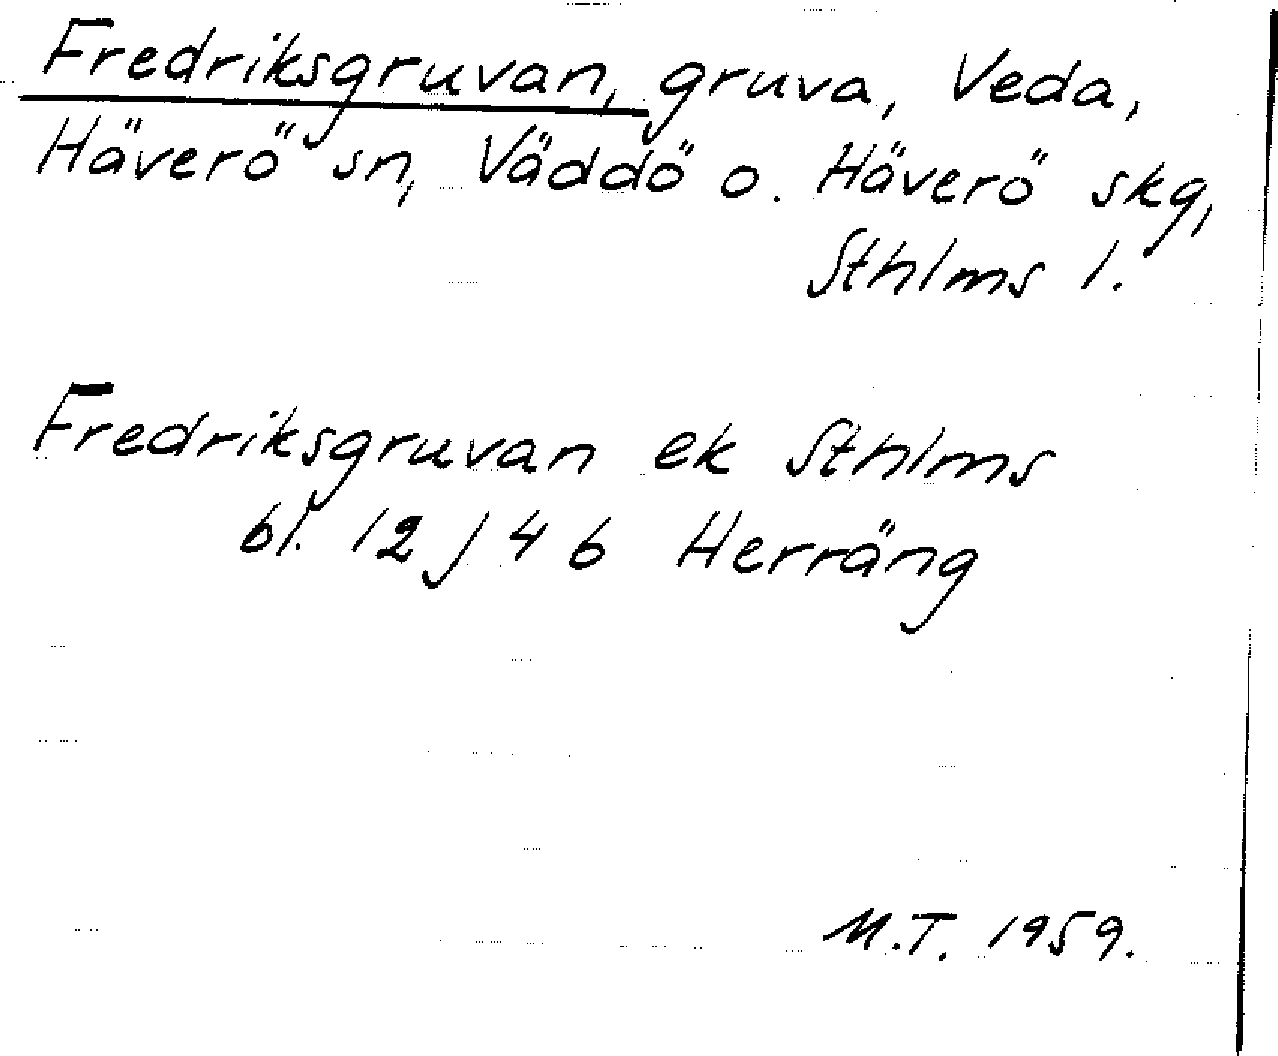 Fredriksgruvan, gruva, Veda,
Häverö sn, Väddö o. Häverö skg,
Sthlms l.
Fredriksgruvan ek Sthlms
bl. 12 J 4 b Herräng
M.T. 1959.